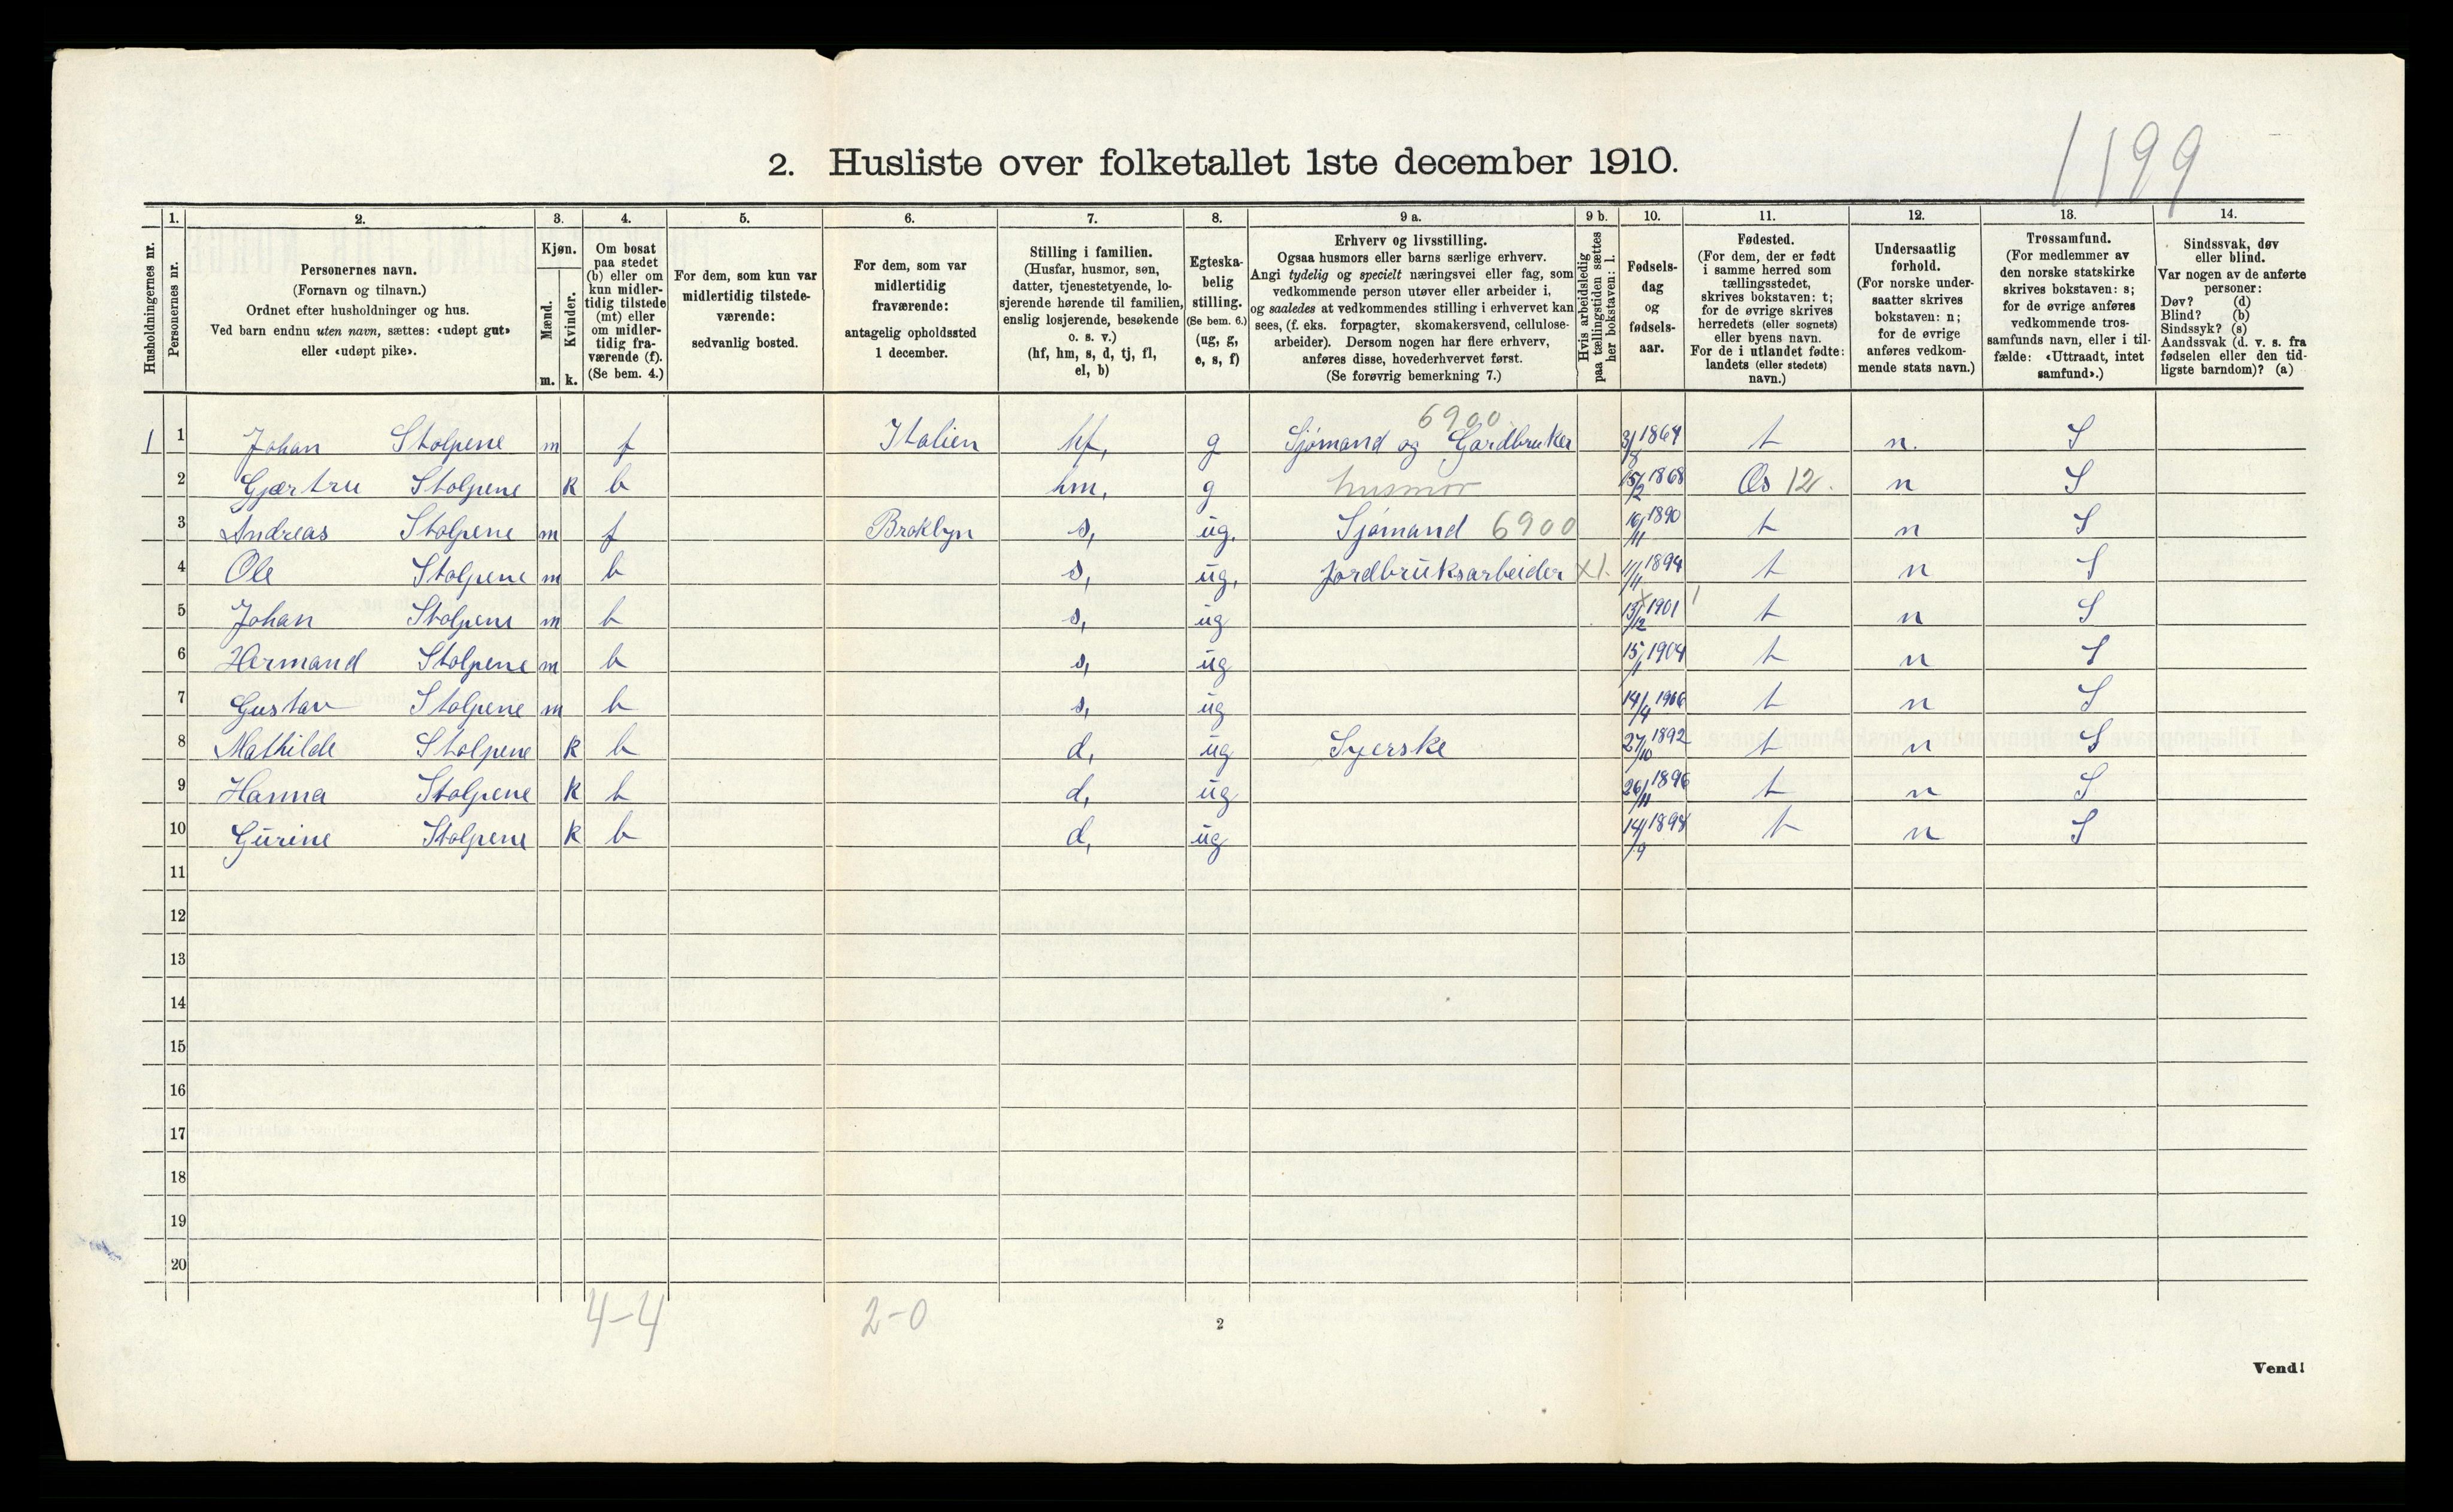 1199
2. Husliste over folketallet 1ste december 1910.
Husholdningernes nr.
1. Personernes nr.
2. Personernes navn. (Fornavn og tilnavn.) Ordnet efter husholdninger og hus. Ved barn endnu uten navn, sættes: «udøpt gut» eller «udøpt pike».
3. Kjøn. Mænd. m. Kvinder. k.
4. Om bosat paa stedet (b) eller om kun midlertidig tilstede (mt) eller om midlertidig fraværende (f). (Se bem. 4.)
5. For dem, som kun var midlertidig tilstedeværende: sedvanlig bosted.
6. For dem, som var midlertidig fraværende: antagelig opholdssted 1 december.
7. Stilling i familien. (Husfar, husmor, søn, datter, tjenestetyende, losjerende hørende til familien, enslig losjerende, besøkende o. s. v.) (hf, hm, s, d, tj, fl, el, b)
8. Egteskabelig stilling. (Se bem. 6.) (ug, g, e, s, f)
9 a. Erhverv og livsstilling. Ogsaa husmors eller barns særlige erhverv. Angi tydelig og specielt næringsvei eller fag, som vedkommende person utøver eller arbeider i, og saaledes at vedkommendes stilling i erhvervet kan sees, (f. eks. forpagter, skomakersvend, cellulosearbeider). Dersom nogen har flere erhverv, anføres disse, hovederhvervet først. (Se forøvrig bemerkning 7.)
9 b. Hvis arbeidsledig paa tællingstiden sættes her bokstaven: l.
10. Fødselsdag og fødselsaar.
11. Fødested. (For dem, der er født i samme herred som tællingsstedet, skrives bokstaven: t; for de øvrige skrives herredets (eller sognets) eller byens navn. For de i utlandet fødte: landets (eller stedets) navn.)
12. Undersaatlig forhold. (For norske undersaatter skrives bokstaven: n; for de øvrige anføres vedkommende stats navn.)
13. Trossamfund. (For medlemmer av den norske statskirke skrives bokstaven: s; for de øvrige anføres vedkommende trossamfunds navn, eller i tilfælde: «Uttraadt, intet samfund».)
14. Sindssvak, døv eller blind. Var nogen av de anførte personer: Døv? (d) Blind? (b) Sindssyk? (s) Aandssvak (d. v. s. fra fødselen eller den tidligste barndom)? (a)
6900
1 1 Johan Stolpene m f Italien hf, g Sjømand og Gardbruker 3/8 1864 t n. S
2 Gjærtru Stolpene k b hm, g husmor 15/2 1868 Os 12. n S
3 Andreas Stolpene m f Broklyn s, ug. Sjømand 6900 16/11 1890 t n S
4 Ole Stolpene m b s, ug, jordbruksarbeider x 1. 11/11 1894 t n S
5 Johan Stolpene m b s, ug 13/12 1901 t n S
6 Hermand Stolpene m b s, ug 15/1 1904 t n S
7 Gustav Stolpene m b s, ug 14/4 1906 t n S
8 Mathilde Stolpene k b d, ug Syerske 27/10 1892 t n S
9 Hanna Stolpene k b d, ug 26/11 1896 t n S
10 Gurine Stolpene k b d, ug 14/9 1898 t n S
11
12
13
14
15
16
17
18
19
20
4-4 2-0
2
Vend!